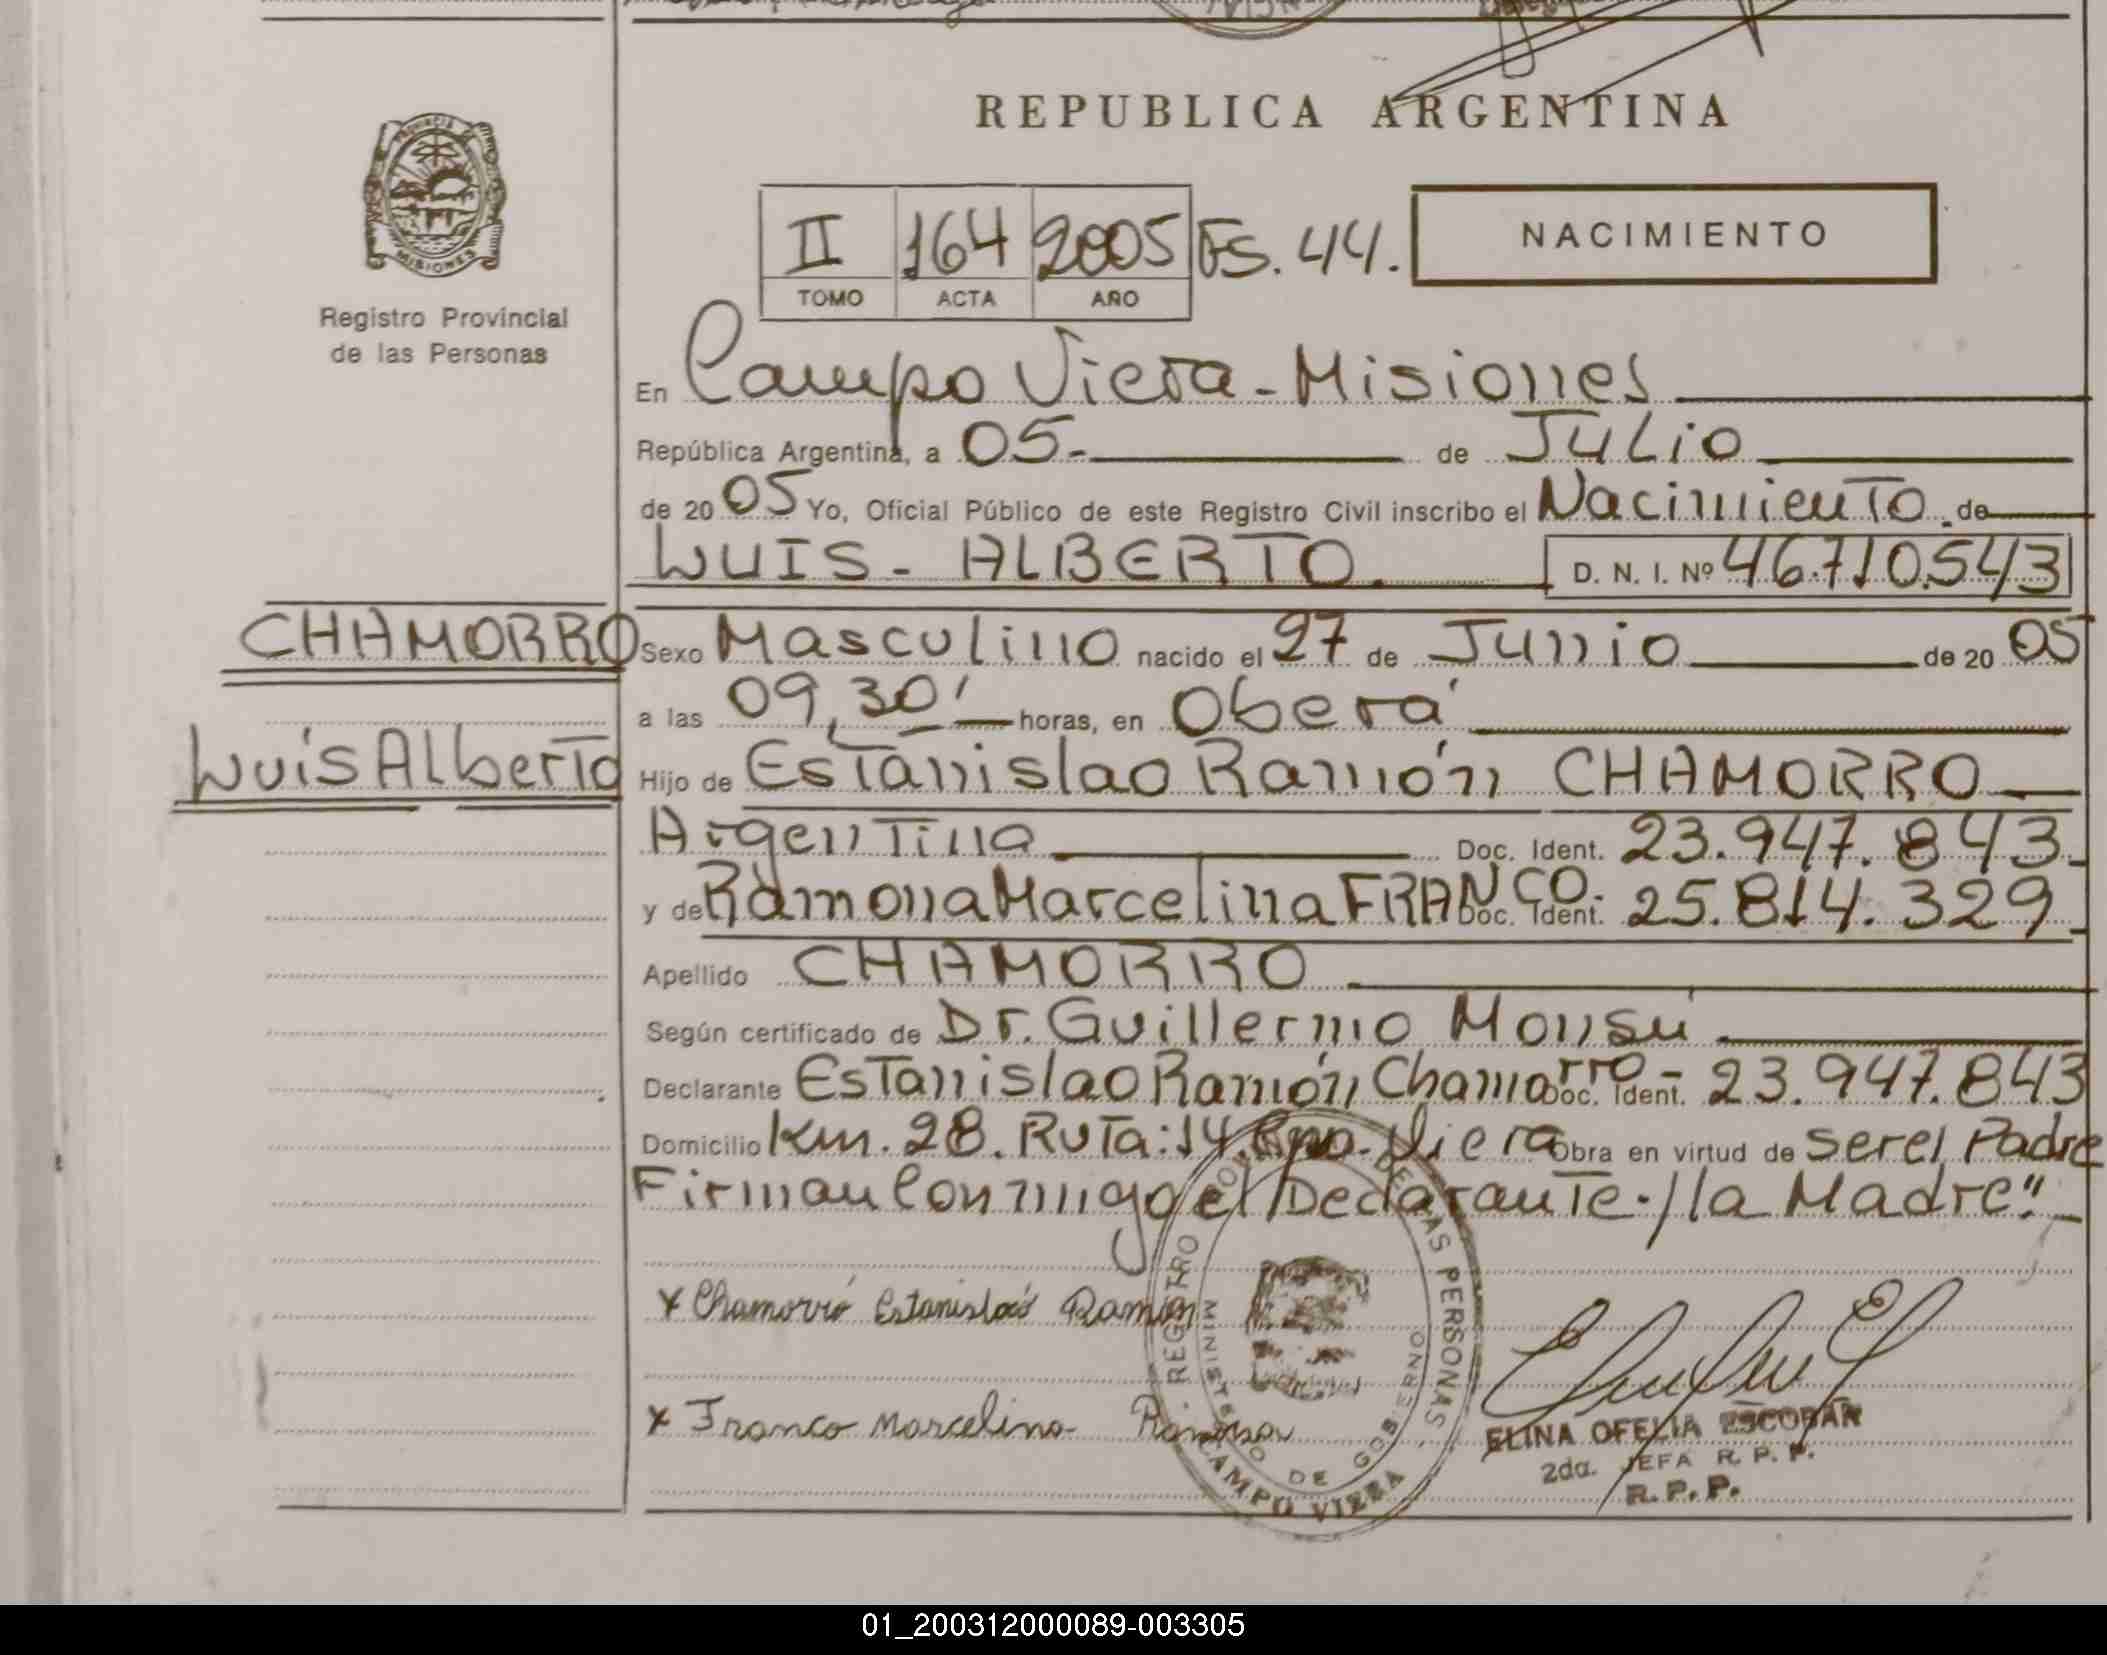 REPUBLICA ARGENTINA
PROVINCIA DE MISIONES
Registro Provincial
de las Personas
II 164 2005 Fs. 44.
TOMO ACTA AÑO
NACIMIENTO
En Campo Viera - Misiones
República Argentina, a 05.- de Julio
de 2005 Yo, Oficial Público de este Registro Civil inscribo el Nacimiento de
LUIS - ALBERTO. D. N. I. Nº 46.710.543
CHAMORRO
Luis Alberto
Sexo Masculino nacido el 27 de Junio de 2005
a las 09,30' horas, en Oberá
Hijo de Estanislao Ramón CHAMORRO
Argentina Doc. Ident. 23.947.843
y de Ramona Marcelina FRANCO.- Doc. Ident. 25.814.329
Apellido CHAMORRO
Según certificado de Dr. Guillermo Monsú.
Declarante Estanislao Ramón Chamorro - Doc. Ident. 23.947.843
Domicilio Km. 28. Ruta: 14. Cpo. Viera Obra en virtud de ser el Padre
Firman Conmigo el Declarante./la Madre".
x Chamorro Estanislao Ramón
x Franco Marcelina Ramona
REGISTRO DE LAS PERSONAS
MINISTERIO DE GOBIERNO
CAMPO VIERA
ELINA OFELIA ESCOBAR
2da. JEFA R. P. P.
R. P. P.
01_200312000089-003305